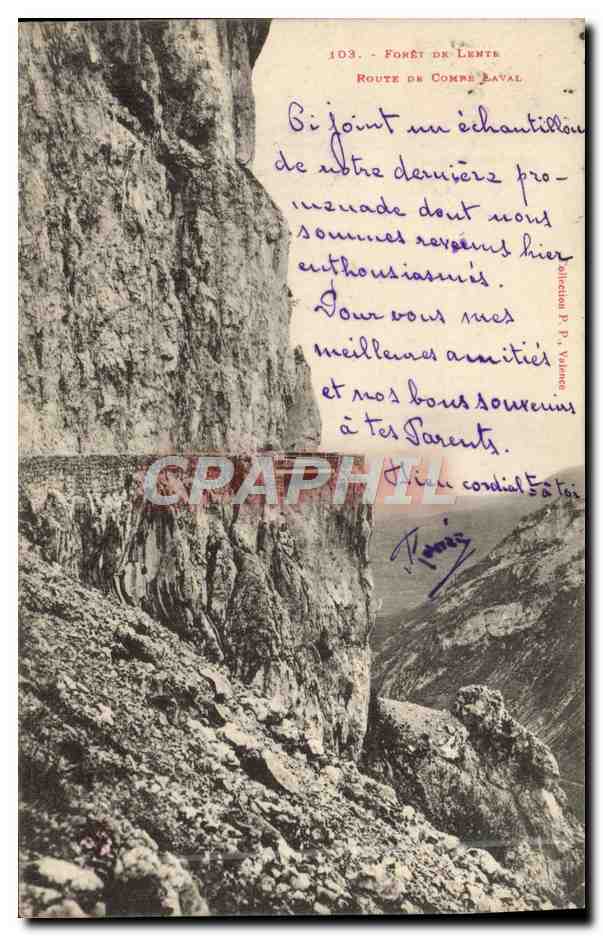 103. - FORÊT DE LENTE
ROUTE DE COMBE LAVAL
Ci joint un échantillon
de notre dernière pro-
menade dont nous
sommes revenus hier
enthousiasmés.
Pour vous mes
meilleures amitiés
et nos bons souvenirs
à tes Parents.
Bien cordialt à toi
Collection P. P., Valence
CPAPHIL